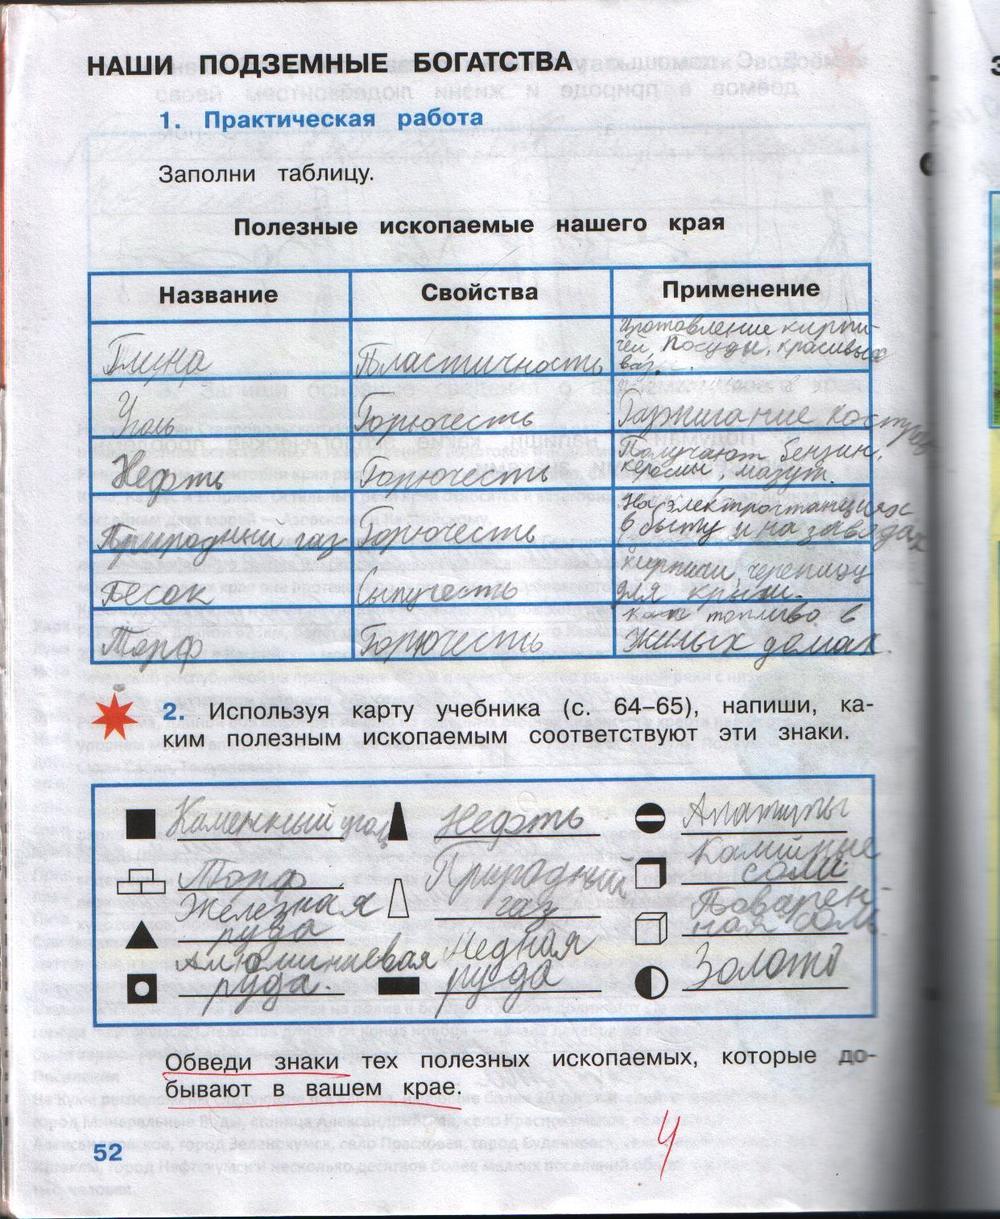 НАШИ ПОДЗЕМНЫЕ БОГАТСТВА
1. Практическая работа
Заполни таблицу.
Полезные ископаемые нашего края
Название Свойства Применение
Глина Пластичность Изготовление кирпи-
чей, посуды, красивых
ваз.
Уголь Горючесть Разжигание костров
Нефть Горючесть Получают бензин,
керосин, мазут.
Природный газ Горючесть На электростанциях
в быту и на заводах
Песок Сыпучесть кирпичи, черепицу
для крыши.
Торф Горючесть как топливо в
жилых домах.
2. Используя карту учебника (с. 64–65), напиши, ка-
ким полезным ископаемым соответствуют эти знаки.
Каменный уголь Нефть Апатиты
Торф Природный газ Калийные соли
Железная руда Поварен-
ная соль.
Алюминиевая руда. Медная руда Золото
Обведи знаки тех полезных ископаемых, которые до-
бывают в вашем крае.
4
52